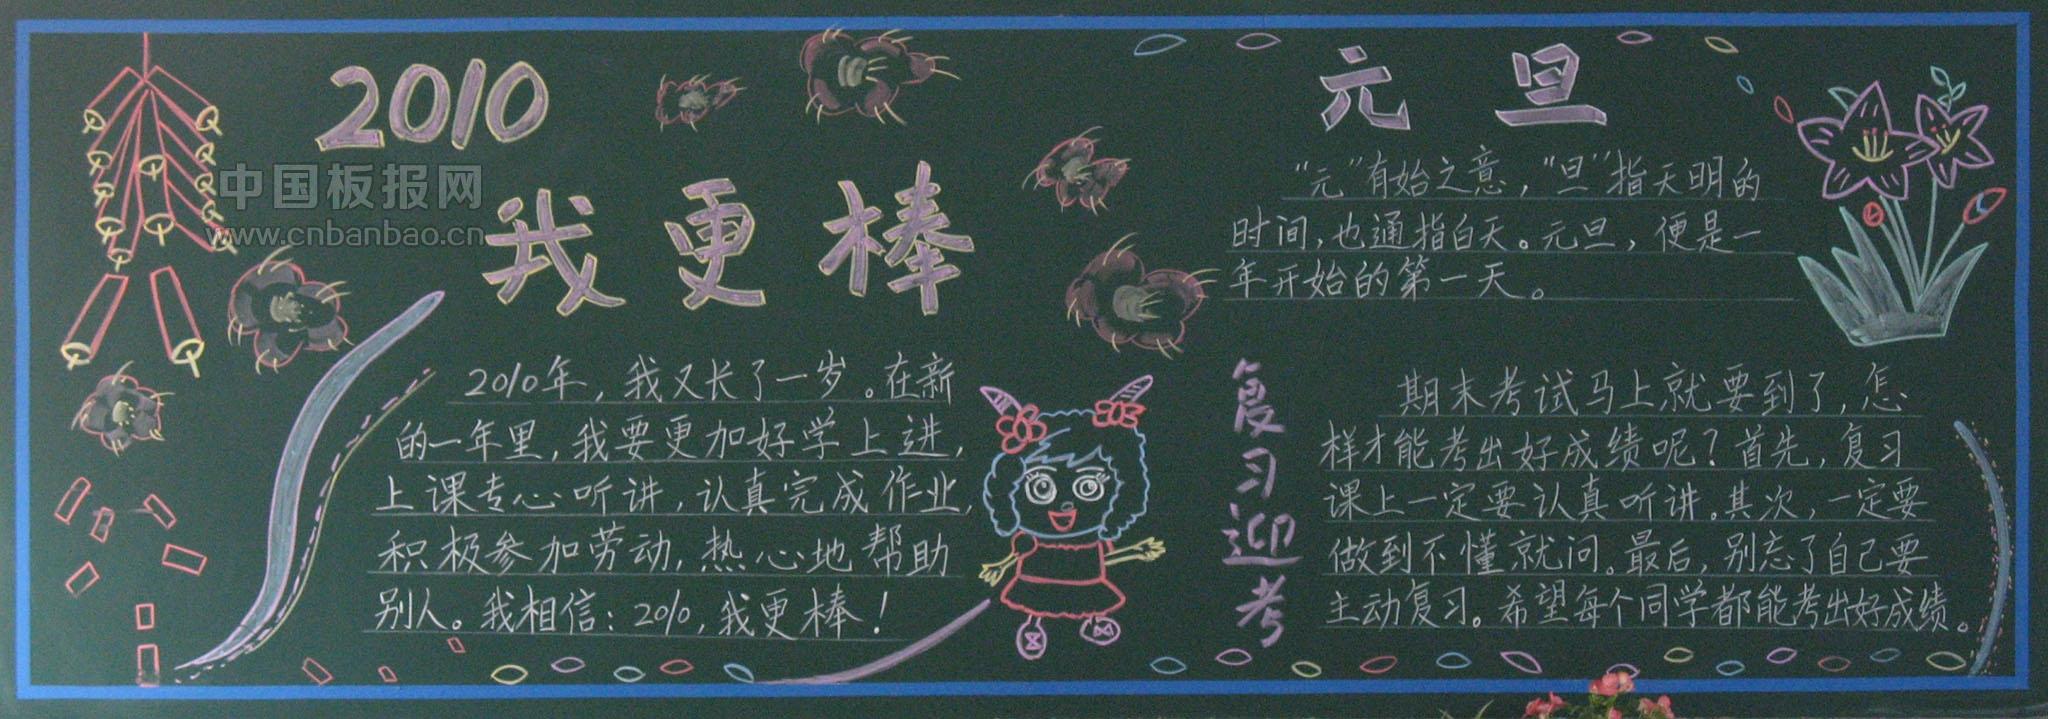 2010
我更棒
2010年，我又长了一岁。在新
的一年里，我要更加好学上进，
上课专心听讲，认真完成作业，
积极参加劳动，热心地帮助
别人。我相信：2010，我更棒！
元旦
“元”有始之意，“旦”指天明的
时间，也通指白天。元旦，便是一
年开始的第一天。
复习迎考
期末考试马上就要到了，怎
样才能考出好成绩呢？首先，复习
课上一定要认真听讲。其次，一定要
做到不懂就问。最后，别忘了自己要
主动复习。希望每个同学都能考出好成绩。
中国板报网
www.cnbanbao.cn